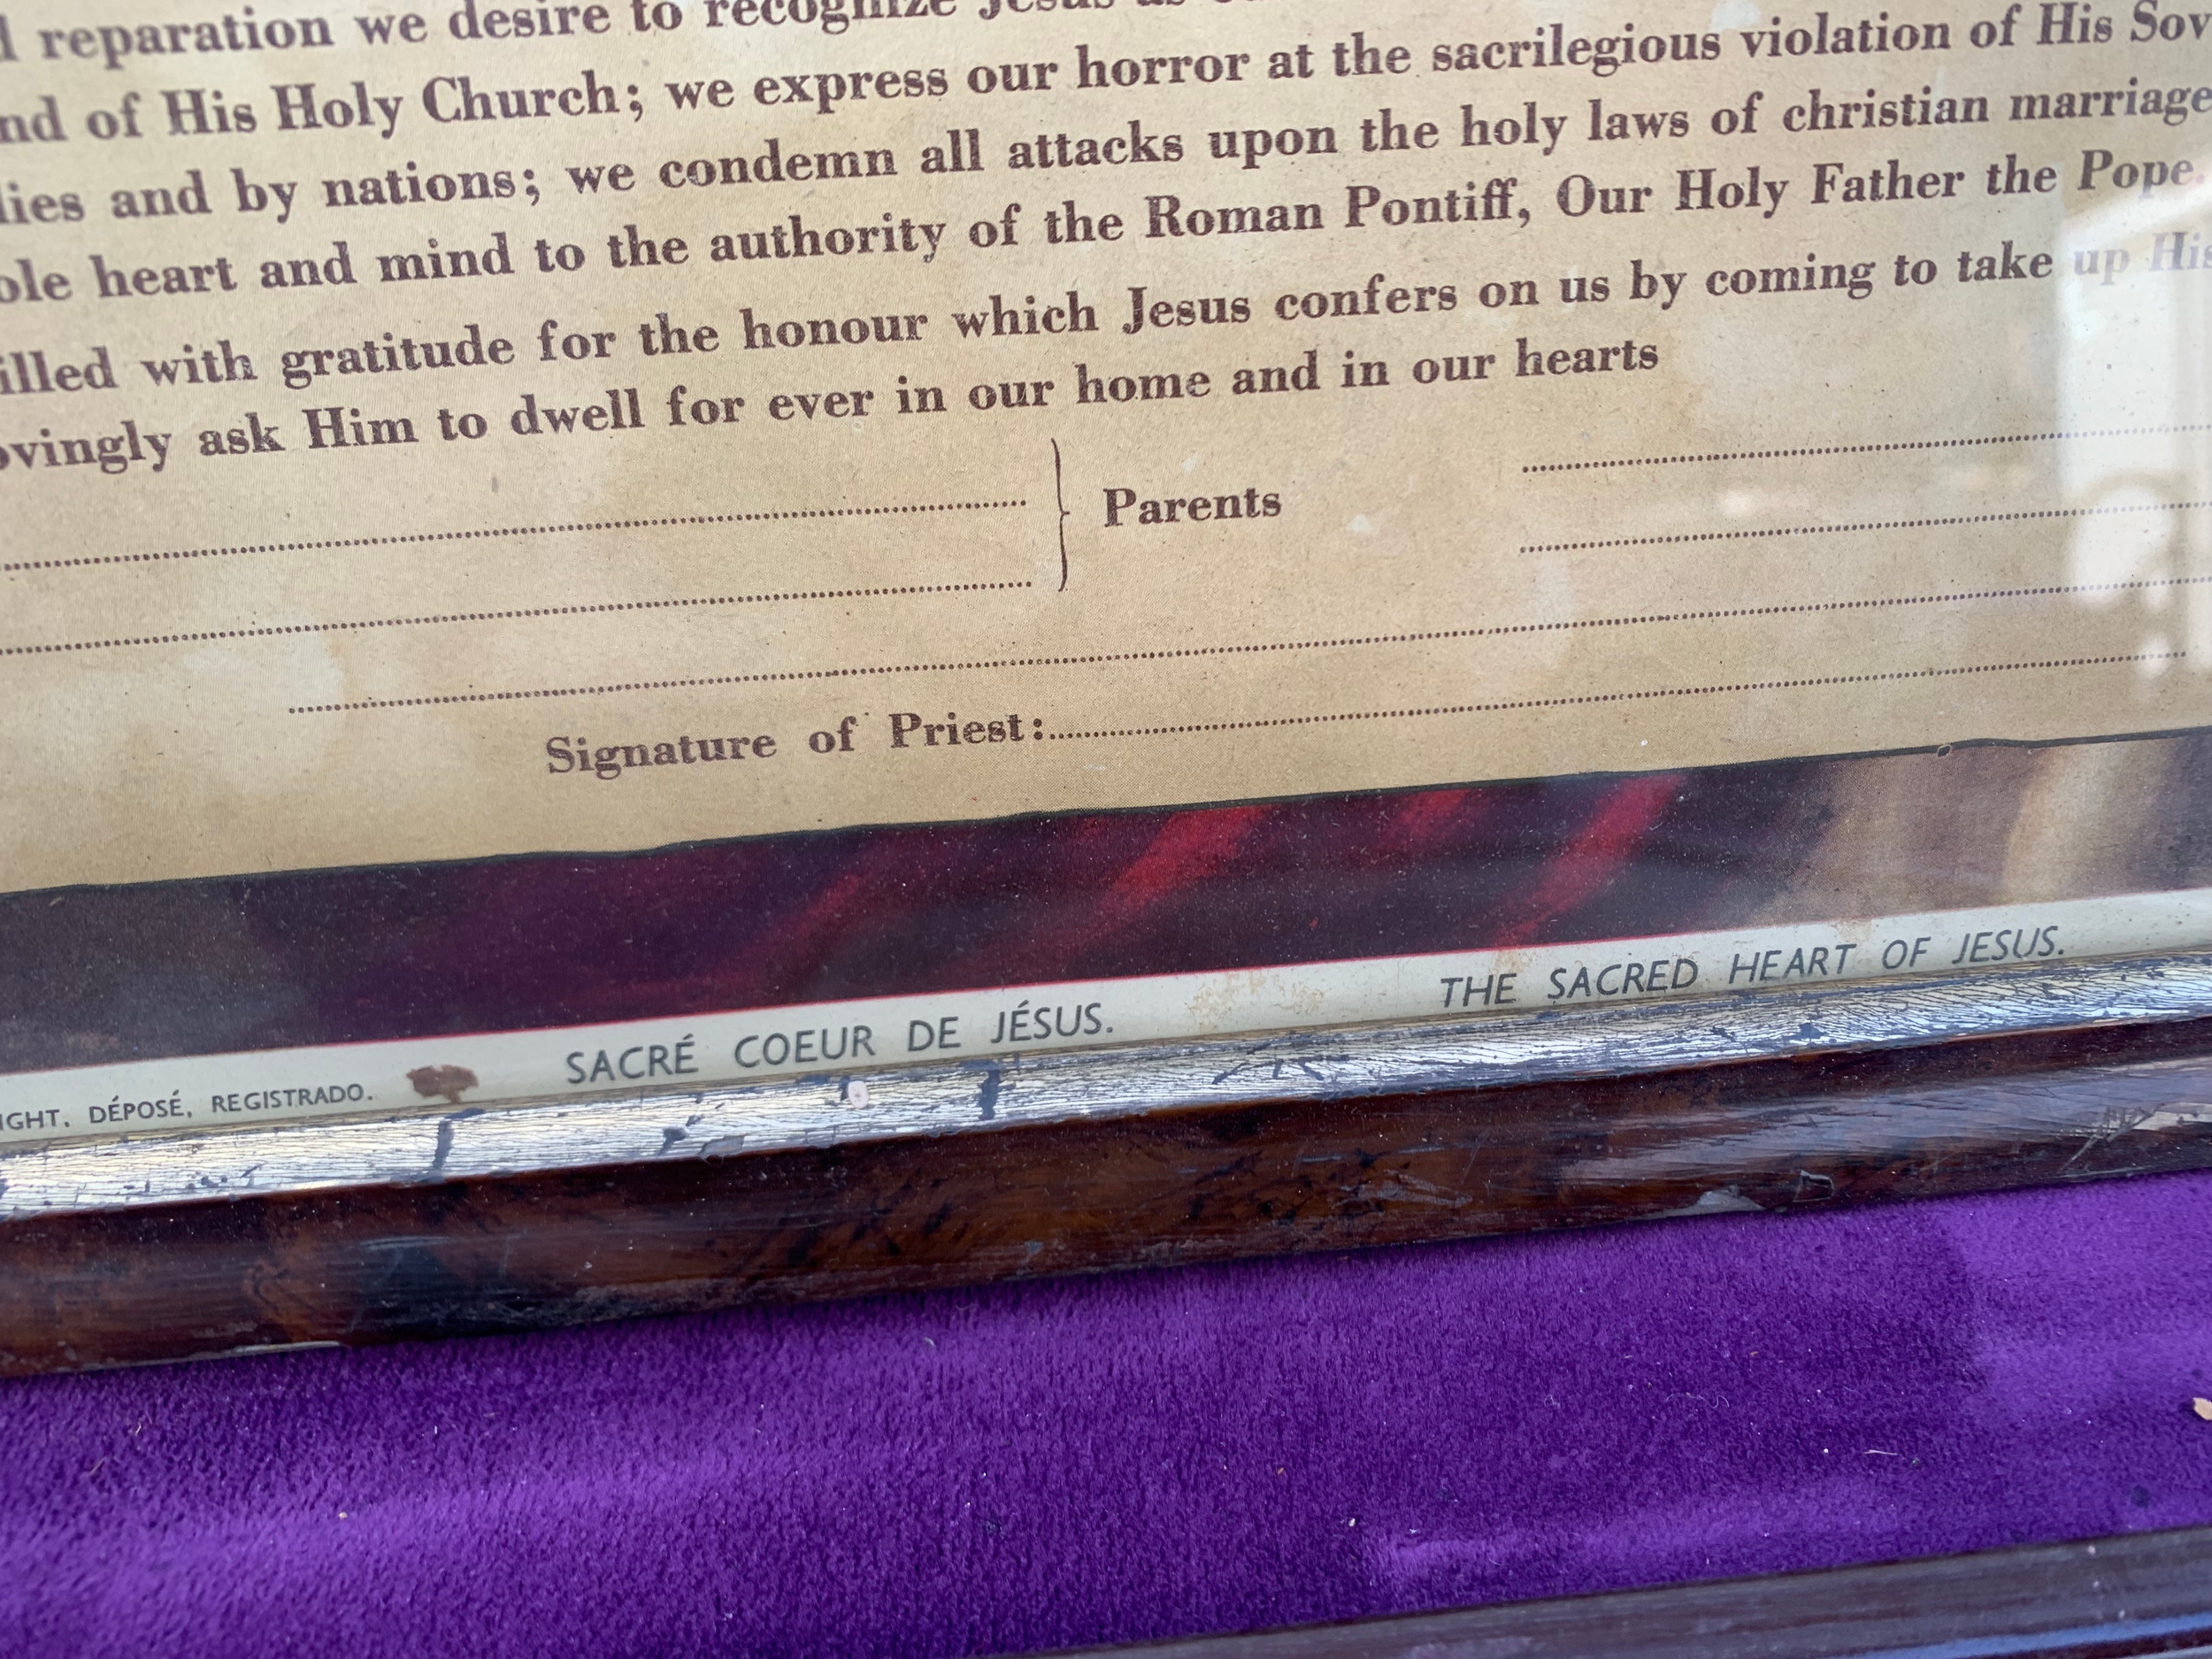 reparation we desire to recognize Jesus as
of His Holy Church; we express our horror at the sacrilegious violation of His
and by nations; we condemn all attacks upon the holy laws of christian marriage
heart and mind to the authority of the Roman Pontiff, Our Holy Father the Pope.
with gratitude for the honour which Jesus confers on us by coming to take up His
ask Him to dwell for ever in our home and in our hearts
Parents
Signature of Priest:
DÉPOSÉ, REGISTRADO. SACRÉ COEUR DE JÉSUS. THE SACRED HEART OF JESUS.